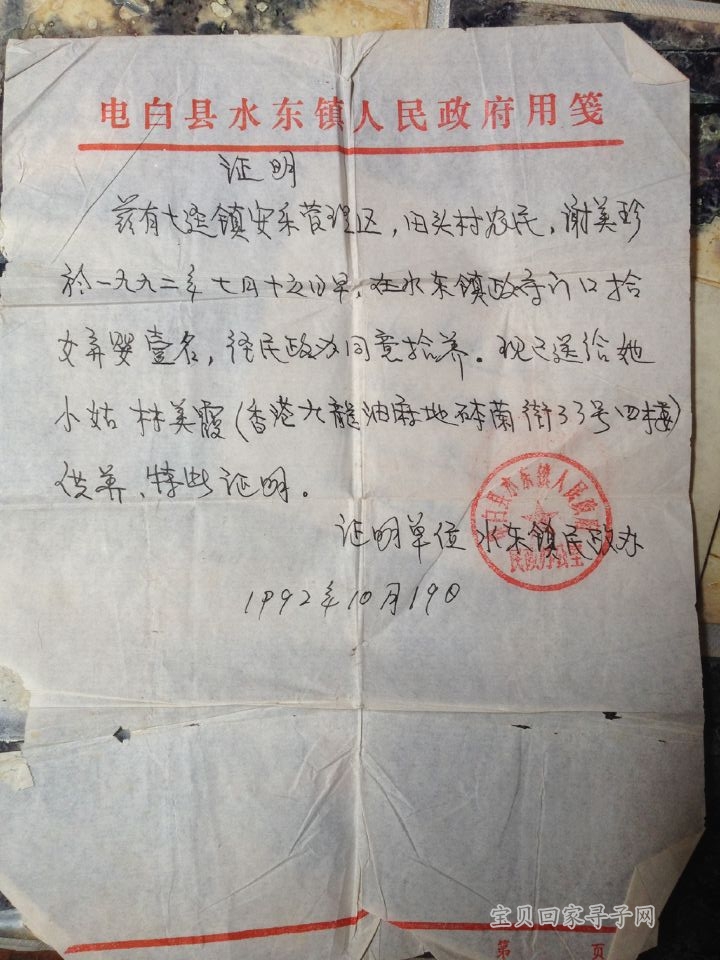 电白县水东镇人民政府用笺
证明
兹有七迳镇安乐管理区，田头村农民，谢美珍
於一九九二年七月十五日早，在水东镇政府门口拾
女弃婴壹名，经民政办同意拾养。现已送给她
小姑林美霞（香港九龍油麻地砵蘭街33号四楼）
供养，特此证明。
证明单位 水东镇民政办
电白县水东镇人民政府
民政办公室
1992年10月19日
宝贝回家寻子网
第 页